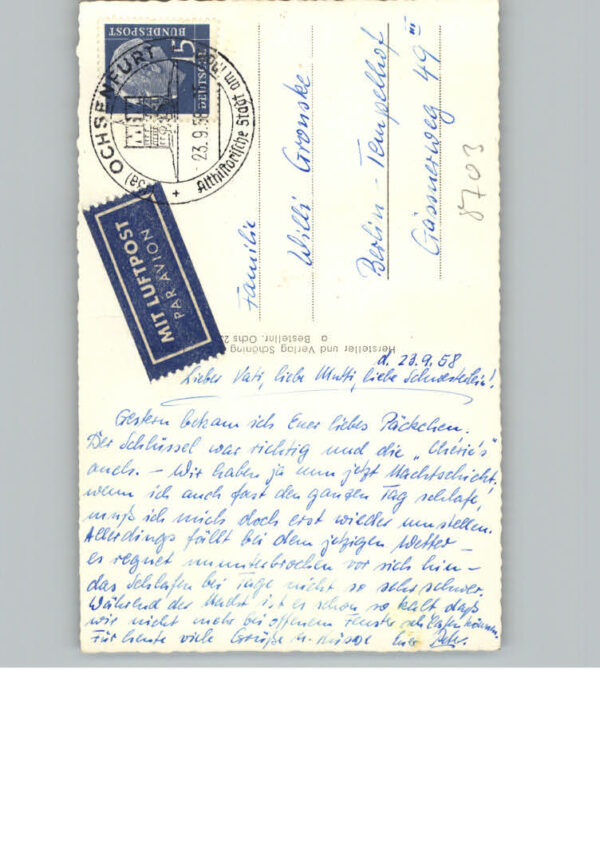 15
DEUTSCHE
BUNDESPOST
OCHSENFURT
23.9.58
Althistorische Stadt am
MIT LUFTPOST
PAR AVION
Familie
Willi Gronske
Berlin-Tempelhof
Gässnerweg 49 III
8703
Hersteller und Verlag Schöning
a Bestellnr. Ochs
d. 23.9.58
Lieber Vati, liebe Mutti, liebe Schwesterlein!
Gestern bekam ich Euer liebes Päckchen.
Der Schlüssel war richtig und die „Chérie's"
auch. – Wir haben ja nun jetzt Nachtschicht,
wenn ich auch fast den ganzen Tag schlafe,
muß ich mich doch erst wieder umstellen.
Allerdings fällt bei dem jetzigen Wetter –
es regnet ununterbrochen vor sich hin –
das Schlafen bei Tage nicht so sehr schwer.
Während der Nacht ist es schon so kalt daß
wir nicht mehr bei offenem Fenster schlafen können.
Für heute viele Grüße u. Küsse Euer